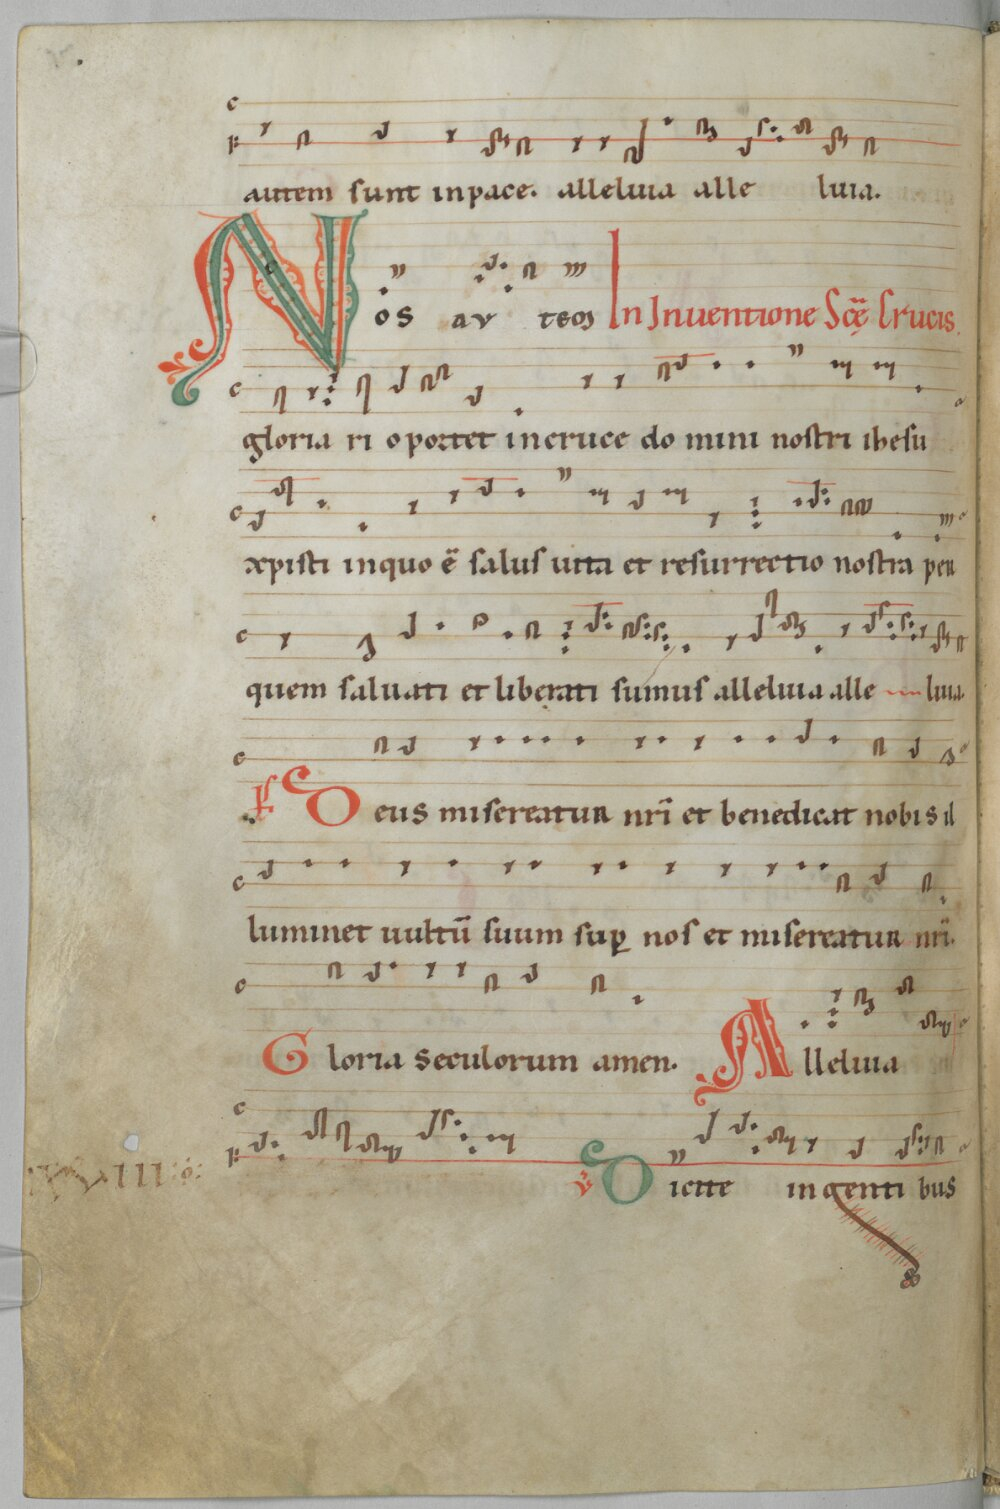 autem sunt in pace. alleluia alle luia.
NOS AUTEM In Inuentione Scē Crucis
gloria ri oportet in cruce do mini nostri ihesu
xpisti in quo ē salus uita et resurrectio nostra per
quem saluati et liberati sumus alleluia alle luia.
Ps Deus misereatur nrī et benedicat nobis il
luminet uultū suum sup nos et misereatur nrī.
Gloria seculorum amen. Alleluia
V Dicite in gentibus